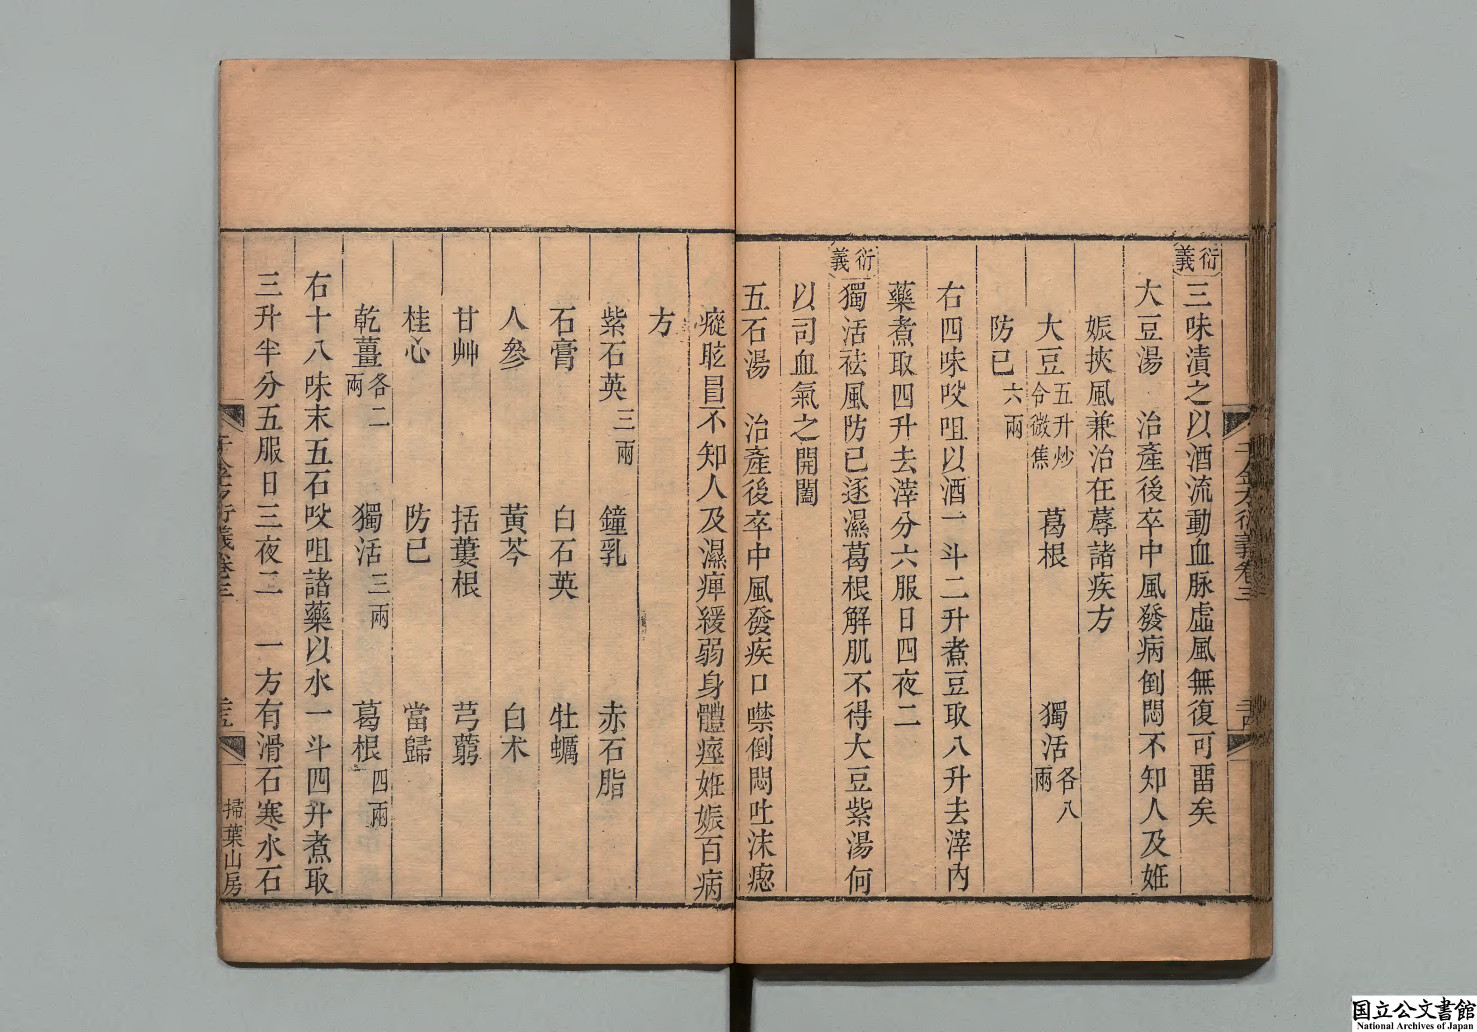 衍義
三味漬之以酒流動血脉虛風無復可畱矣
大豆湯　治產後卒中風發病倒悶不知人及姙
娠挾風兼治在蓐諸疾方
大豆五升炒令微焦　葛根　獨活各八兩
防已六兩
右四味㕮咀以酒一斗二升煮豆取八升去滓內
藥煮取四升去滓分六服日四夜二
衍義
獨活祛風防已逐濕葛根解肌不得大豆紫湯何
以司血氣之開闔
五石湯　治產後卒中風發疾口噤倒悶吐沫瘛
瘲眩冒不知人及濕痺緩弱身體痙姙娠百病
方
紫石英三兩　鐘乳　赤石脂
石膏　白石英　牡蠣
人參　黃芩　白术
甘艸　括蔞根　芎藭
桂心　防已　當歸
乾薑各二兩　獨活三兩　葛根四兩
右十八味末五石㕮咀諸藥以水一斗四升煮取
三升半分五服日三夜二　一方有滑石寒水石
掃葉山房
国立公文書館
National Archives of Japan